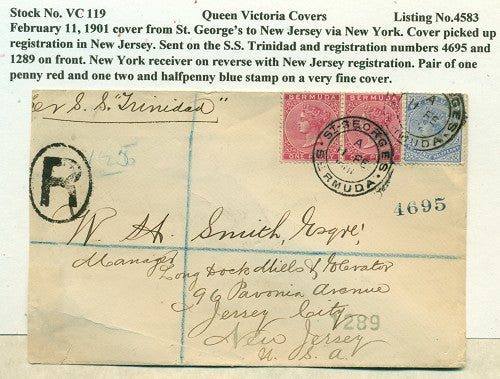 Stock No. VC 119 Queen Victoria Covers Listing No.4583
February 11, 1901 cover from St. George's to New Jersey via New York. Cover picked up
registration in New Jersey. Sent on the S.S. Trinidad and registration numbers 4695 and
1289 on front. New York receiver on reverse with New Jersey registration. Pair of one
penny red and one two and halfpenny blue stamp on a very fine cover.
per S. S. "Trinidad"
BERMUDA BERMUDA
ONE PENNY
ST. GEORGES
A
11 FE
BERMUDA
R
4695
W. H. Smith, Esqre,
Manager
Long Dock Mills & Elevator
96 Pavonia Avenue
Jersey City
289
New Jersey
U. S. A.